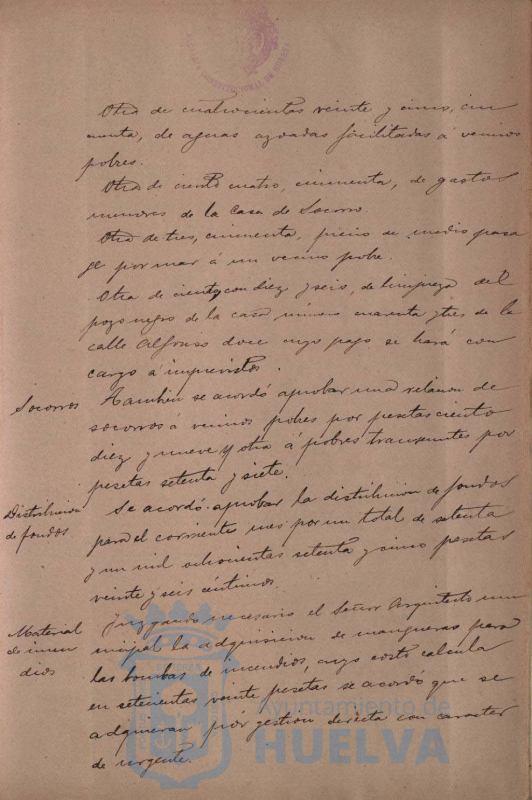 Otra de cuatrocientas veinte y cinco, cin
cuenta, de aguas azoadas facilitadas á vecinos
pobres.
Otra de ciento cuatro, cincuenta, de gastos
menores de la Casa de Socorro.
Otra de tres, cincuenta, precio de medio pasa
ge por mar á un vecino pobre.
Otra de ciento con diez y seis, de limpieza del
pozo negro de la casa número cuarenta y tres de la
calle Alfonso doce cuyo pago se hará con
cargo á imprevistos.
Socorros
Tambien se acordó aprobar una relacion de
socorros á vecinos pobres por pesetas ciento
diez y nueve y otra á pobres transeuntes por
pesetas setenta y siete.
Distribucion
de fondos
Se acordó aprobar la distribucion de fondos
para el corriente mes por un total de setenta
y un mil ochocientas setenta y cinco pesetas
veinte y seis céntimos.
Material
de incen
dios
Juzgando necesario el Señor Arquitecto mu
nicipal la adquisicion de mangueras para
las bombas de incendios, cuyo costo calcula
en setecientas veinte pesetas se acordó que se
adquieran por gestion directa con caracter
de urgente.
Ayuntamiento de
HUELVA